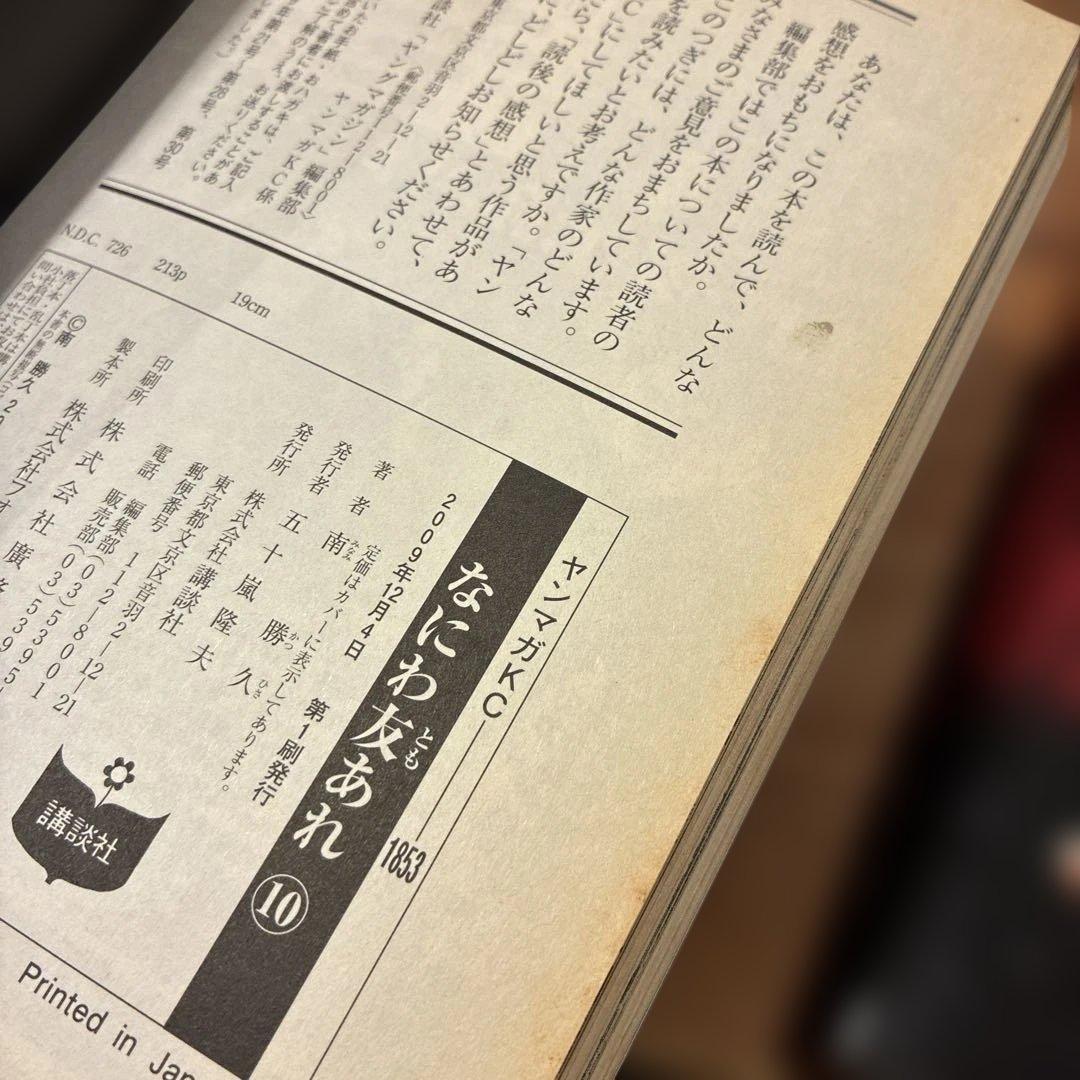 あなたは、この本を読んで、どんな
感想をおもちになりましたか。
編集部ではこの本についての読者の
みなさまのご意見をおまちしています。
このつぎには、どんな作家のどんな
を読みたいとお考えですか。「ヤン
C」にしてほしいと思う作品があ
たら、「読後の感想」とあわせて、
に、どしどしお知らせください。
東京都文京区音羽2-12-21
〈郵便番号112-8001〉
談社「ヤングマガジン」編集部
ヤンマガKC係
N.D.C. 726 213p 19cm
ヤンマガKC 1853
なにわ友あれ ⑩
とも
2009年12月4日 第1刷発行
定価はカバーに表示してあります。
著者 南 勝久
みなみ かつ ひさ
発行者 五十嵐隆夫
発行所 株式会社講談社
東京都文京区音羽2-12-21
郵便番号 112-8001
電話 編集部(03)5395
販売部(03)5395
印刷所 株式会社廣
製本所 株式会社フォ
Ⓒ南 勝久 20
講談社
Printed in Jap